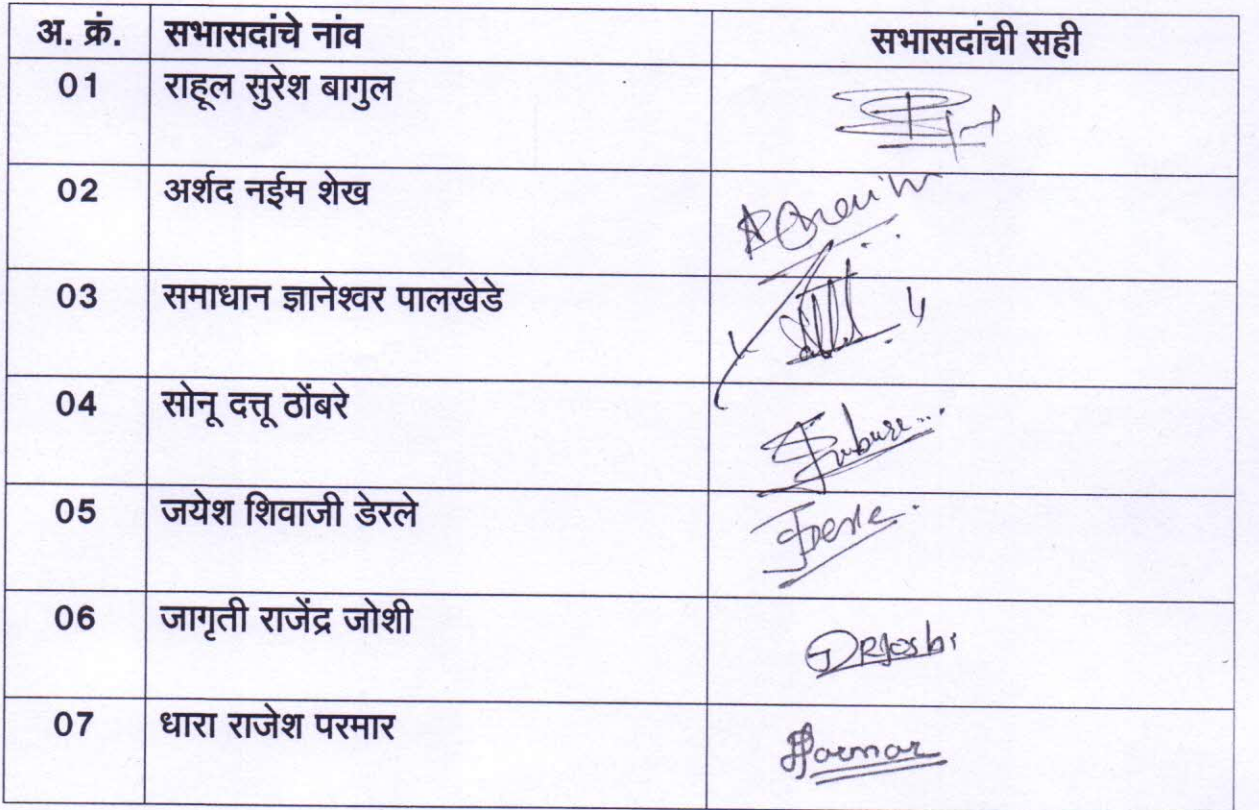 अ. क्रं. सभासदांचे नांव सभासदांची सही
01 राहूल सुरेश बागुल
02 अर्शद नईम शेख
03 समाधान ज्ञानेश्वर पालखेडे
04 सोनू दत्तू ठोंबरे
05 जयेश शिवाजी डेरले
06 जागृती राजेंद्र जोशी
07 धारा राजेश परमार